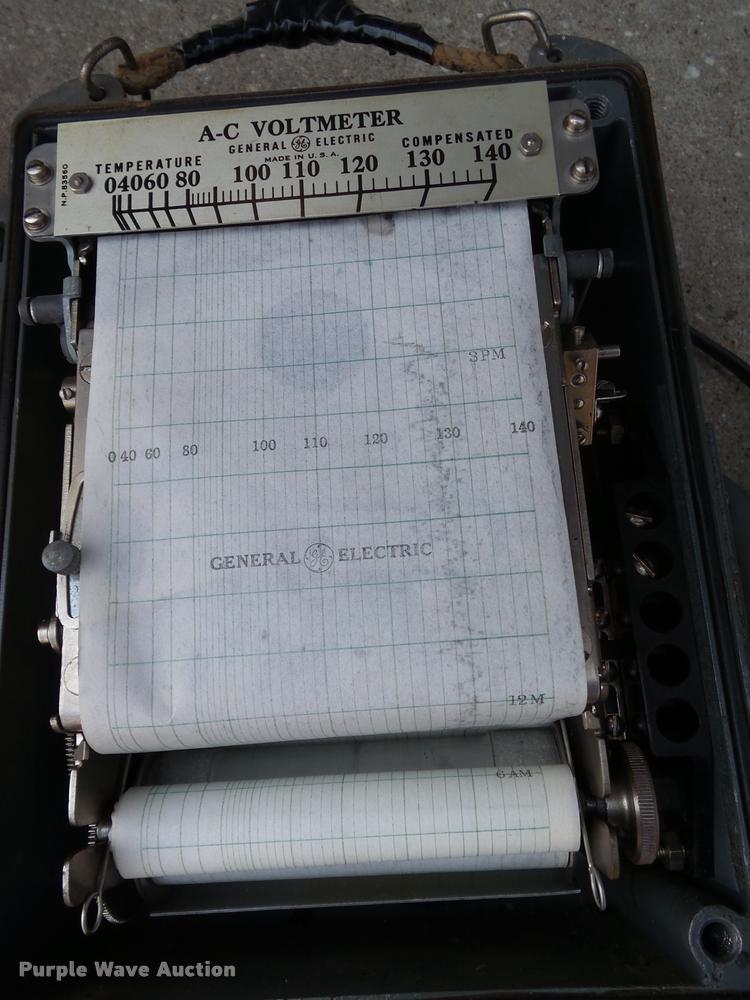 A-C VOLTMETER
GENERAL GE ELECTRIC
MADE IN U.S.A.
TEMPERATURE COMPENSATED
0 40 60 80 100 110 120 130 140
N.P. 83560
3 PM
0 40 60 80 100 110 120 130 140
GENERAL GE ELECTRIC
12 M
6 AM
Purple Wave Auction